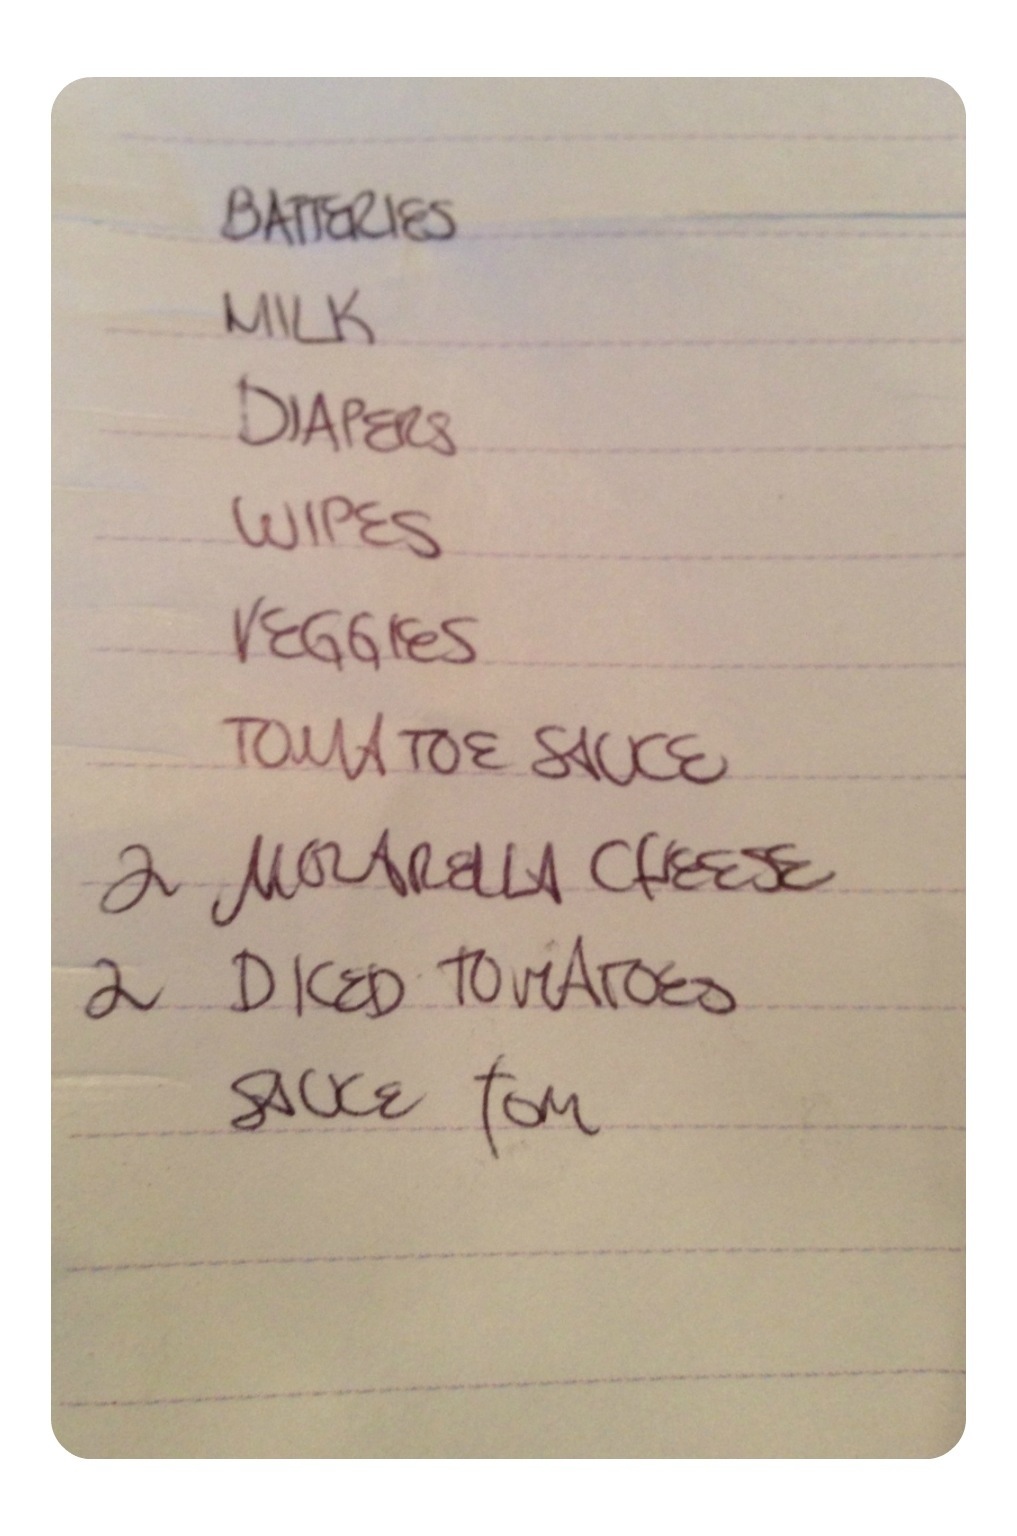 BATTERIES
MILK
DIAPERS
WIPES
VEGGIES
TOMATOE SAUCE
2 MOZARELLA CHEESE
2 DICED TOMATOES
SAUCE TOM